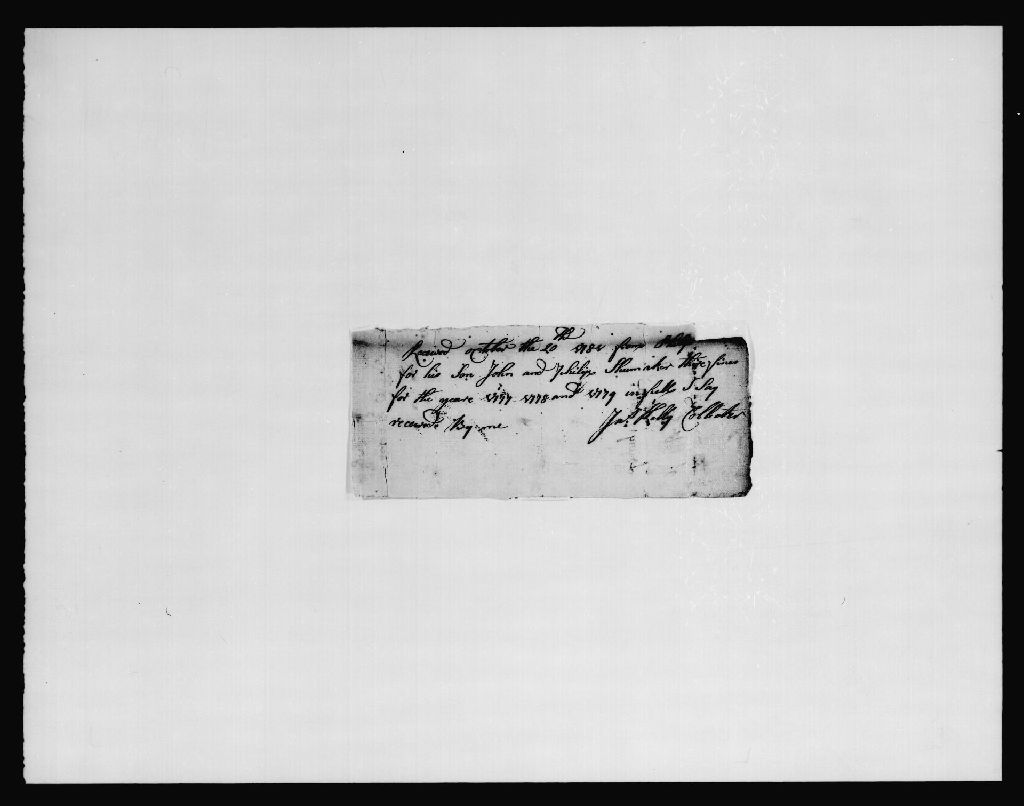 Received october the 20th 178 from Philip
for his Son John and Philip Shumaker there fines
for the yeare 1777 1778 and 1779 in full I Say
received By me Jas Kelly Collector